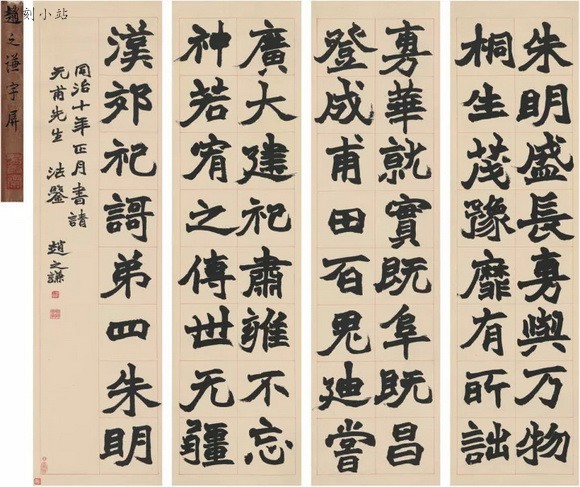 朱明盛長旉與万物
桐生茂豫靡有所詘
旉華就實既阜既昌
登成甫田百鬼迪嘗
廣大建祀肅雝不忘
神若宥之傳世无疆
漢郊祀謌弟四朱明
同治十年正月書請
元甫先生 法鑒 趙之謙
趙之謙字屏
刻小站